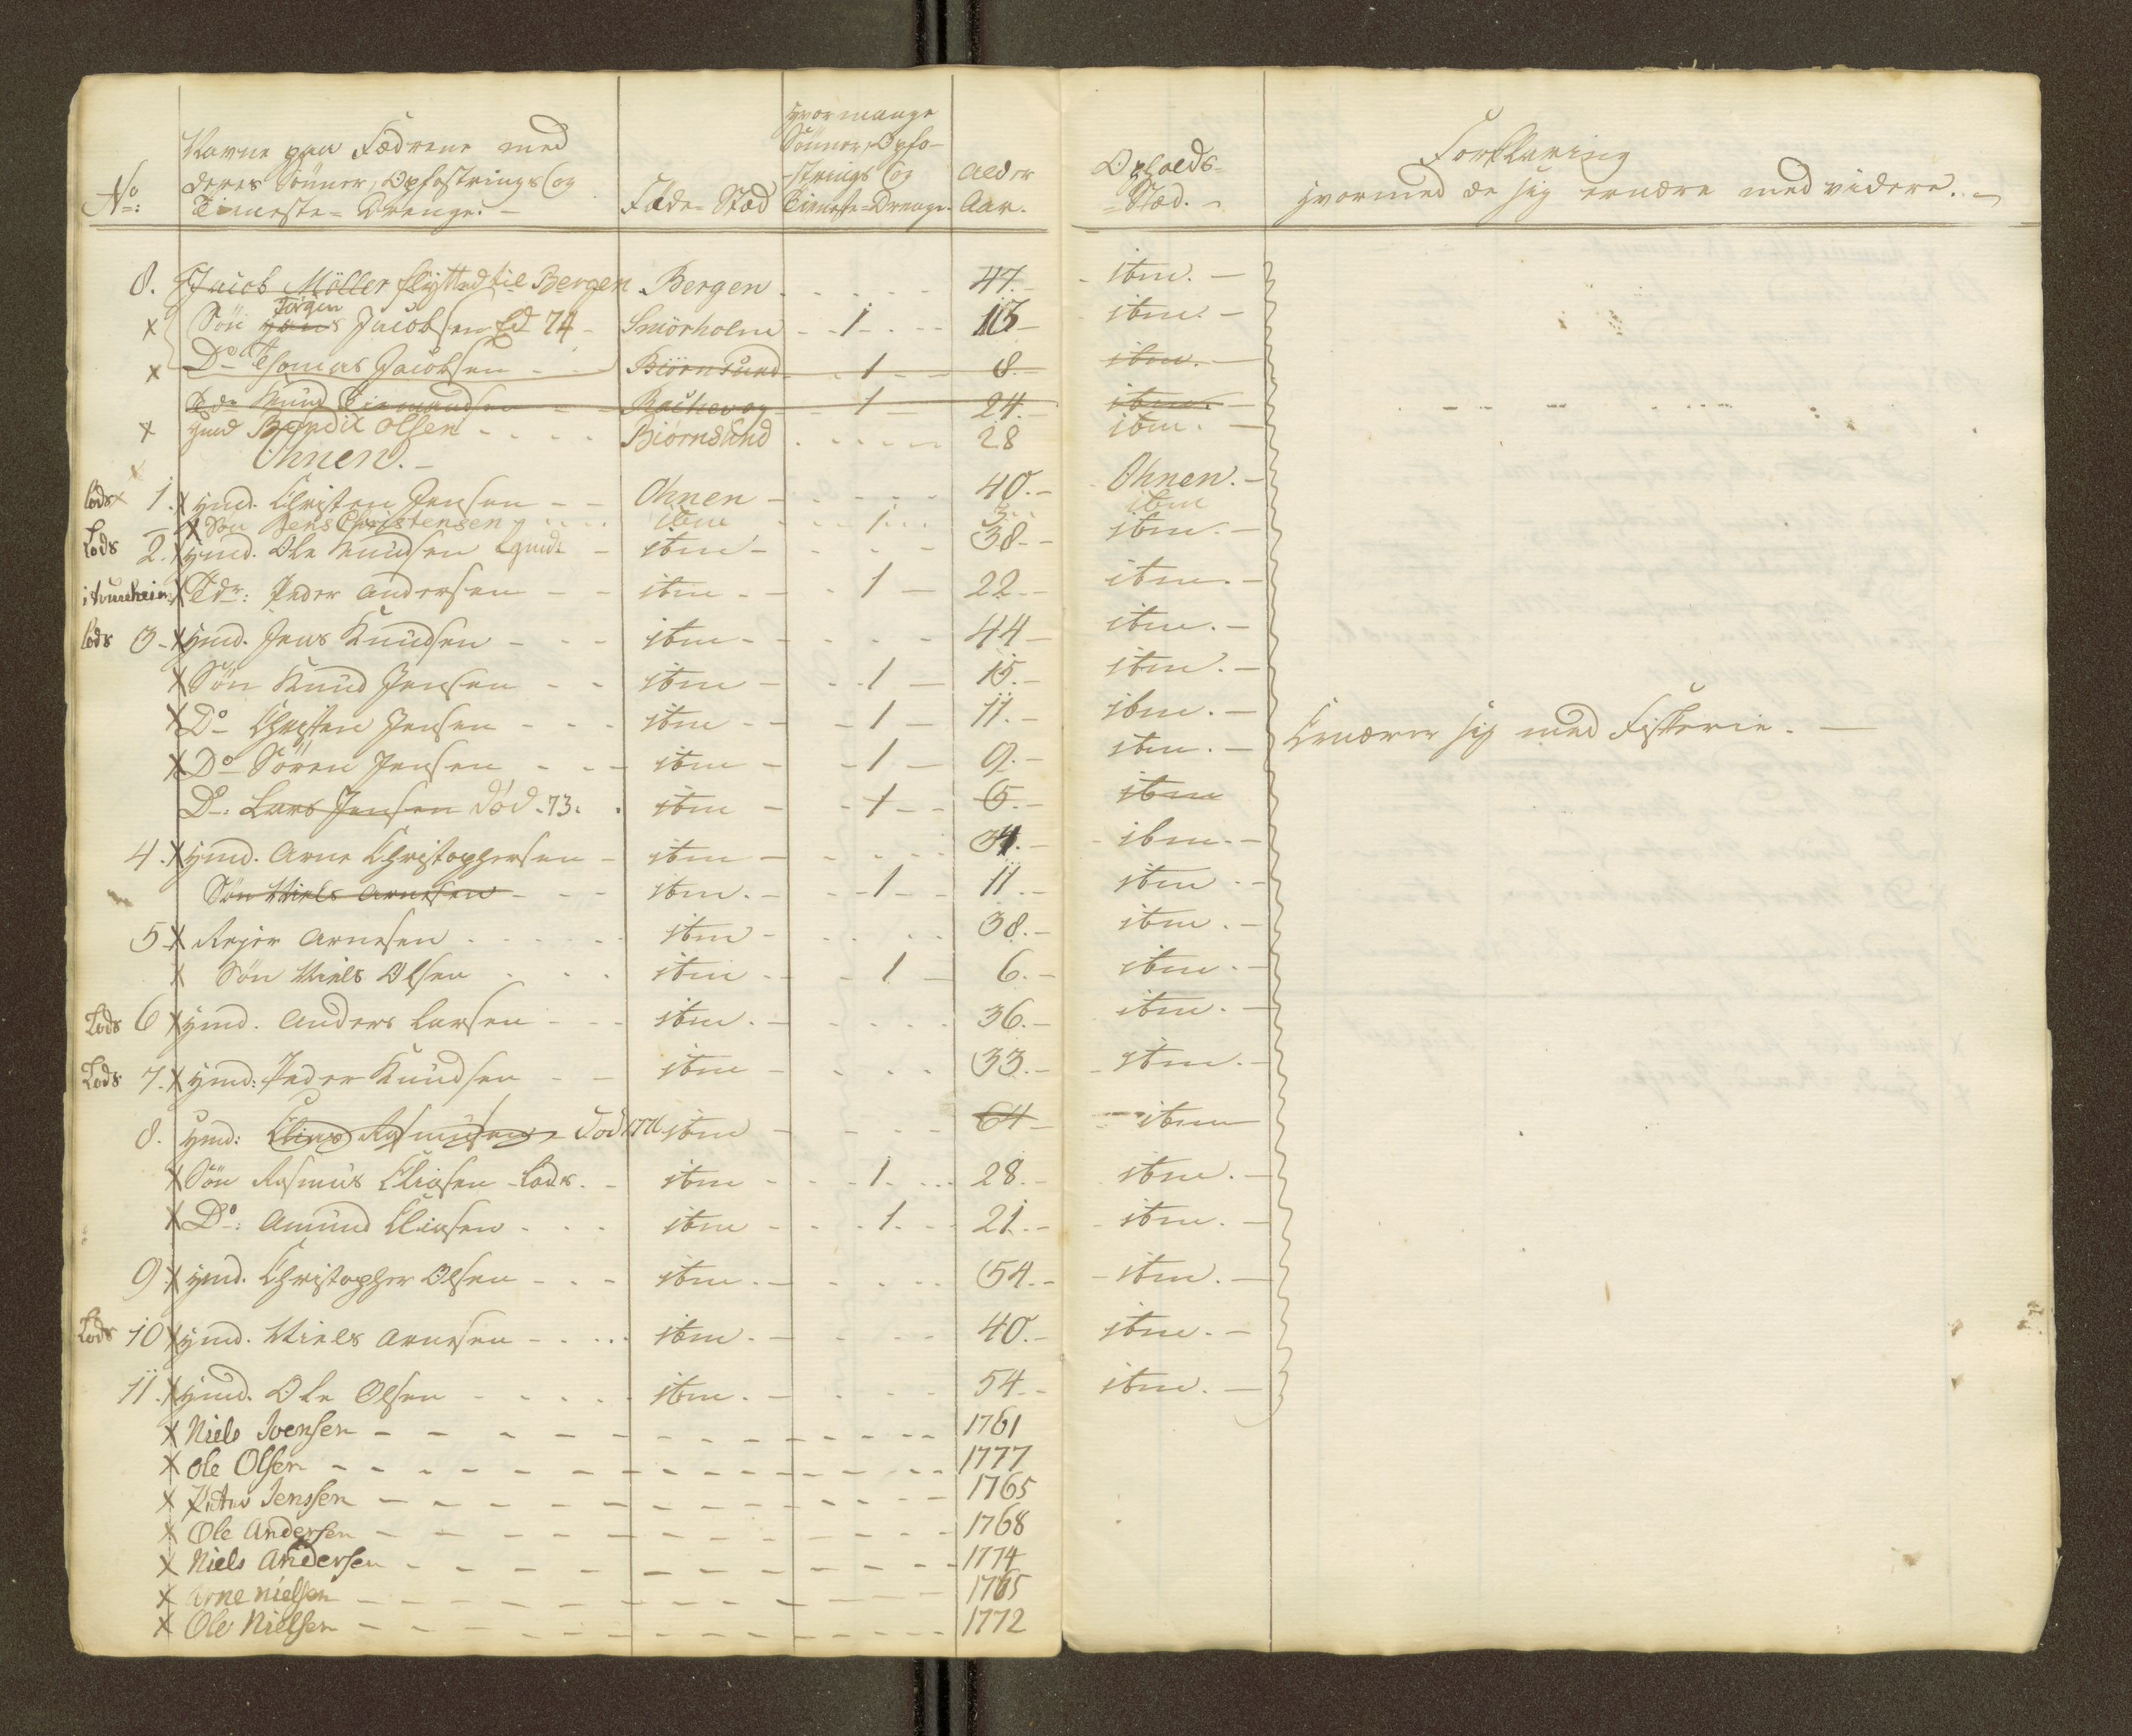 No: Navne paa Fædrene med deres Sönner, Opfostrings (og Tieneste-Drenge. – Föde-Stæd Hvormange Sönner, Opfostrings (og Tieneste-Drenge. Alder Aar. Opholds-Stæd. – Forklaring hvormed de sig ernære med videre. –
8. Jacob Möller flÿtted til Bergen Bergen 47. – ibm. –
x Sön Hans Jörgen Jacobsen fød 74 – Smörholm – 1 – 13 – ibm. –
x Do Thomas Jacobsen Biörnsund – 1 – 8. – ibm. –
Tdr Knud Siemandsen – 1 – 24. – ibm. –
x Hmd Bendix Olsen Biörnsund 28 ibm. –
Ohnen. –
Lods x 1. x Hmd. Christen Jensen – – Ohnen – 40. – Ohnen. –
x Sön Jens Christensen ibm 1 3 ibm
Lods 2. x Hmd. Ole Knudsen – ibm – 38. – ibm. –
i trundheim x Tdr: Peder Andersen – – ibm – – 1 – 22 – ibm. –
Lods 3 – x Hmd. Jens Knudsen – – – ibm – 44 – ibm. –
x Sön Knud Jensen – – ibm – 1 – 15. – ibm. –
x Do Christen Jensen – – – ibm – – 1 – 11. – ibm. –
x Do Sören Jensen – – – ibm – – 1 – 9. – ibm. – Ernærer sig med Fiskerie. –
Do: Lars Jensen död. 73. ibm – 1 – 6. – ibm
4. x Hmd. Arne Christophersen – ibm – 34. – ibm. –
Sön Niels Arnesen – – – ibm. – – 1 – 11. – ibm –
5 x Rejer Arnesen ibm – 38. – ibm. –
x Sön Niels Olsen ibm – – 1 – 6. – ibm. –
Lods 6 x Hmd. Anders Larsen – – – ibm. – 36. – ibm. –
Lods 7. x Hmd: Peder Knudsen – – ibm – 33. – ibm. –
8. Hmd: Elias Rasmusen – Död ibm – 64 – ibm
x Sön Rasmus Eliasen – Lods. – ibm – 1. 28. – ibm. –
x Do: Amund Eliasen – – – ibm – 1. 21. – ibm. –
9 x Hmd. Christopher Olsen – – – ibm. – 54. – ibm. –
Lods 10 x Hmd. Niels Arnesen – ibm. – 40. – ibm. –
11. x Hmd. Ole Olsen – ibm. – 54 – ibm. –
x Niels Ivensen – 1761
x Ole Olsen – 1777
x Jenssen – 1765
x Ole Andersen – 1768
x Niels Andersen – 1774
x Arne Nielsen – 1765
x Ole Nielsen – 1772